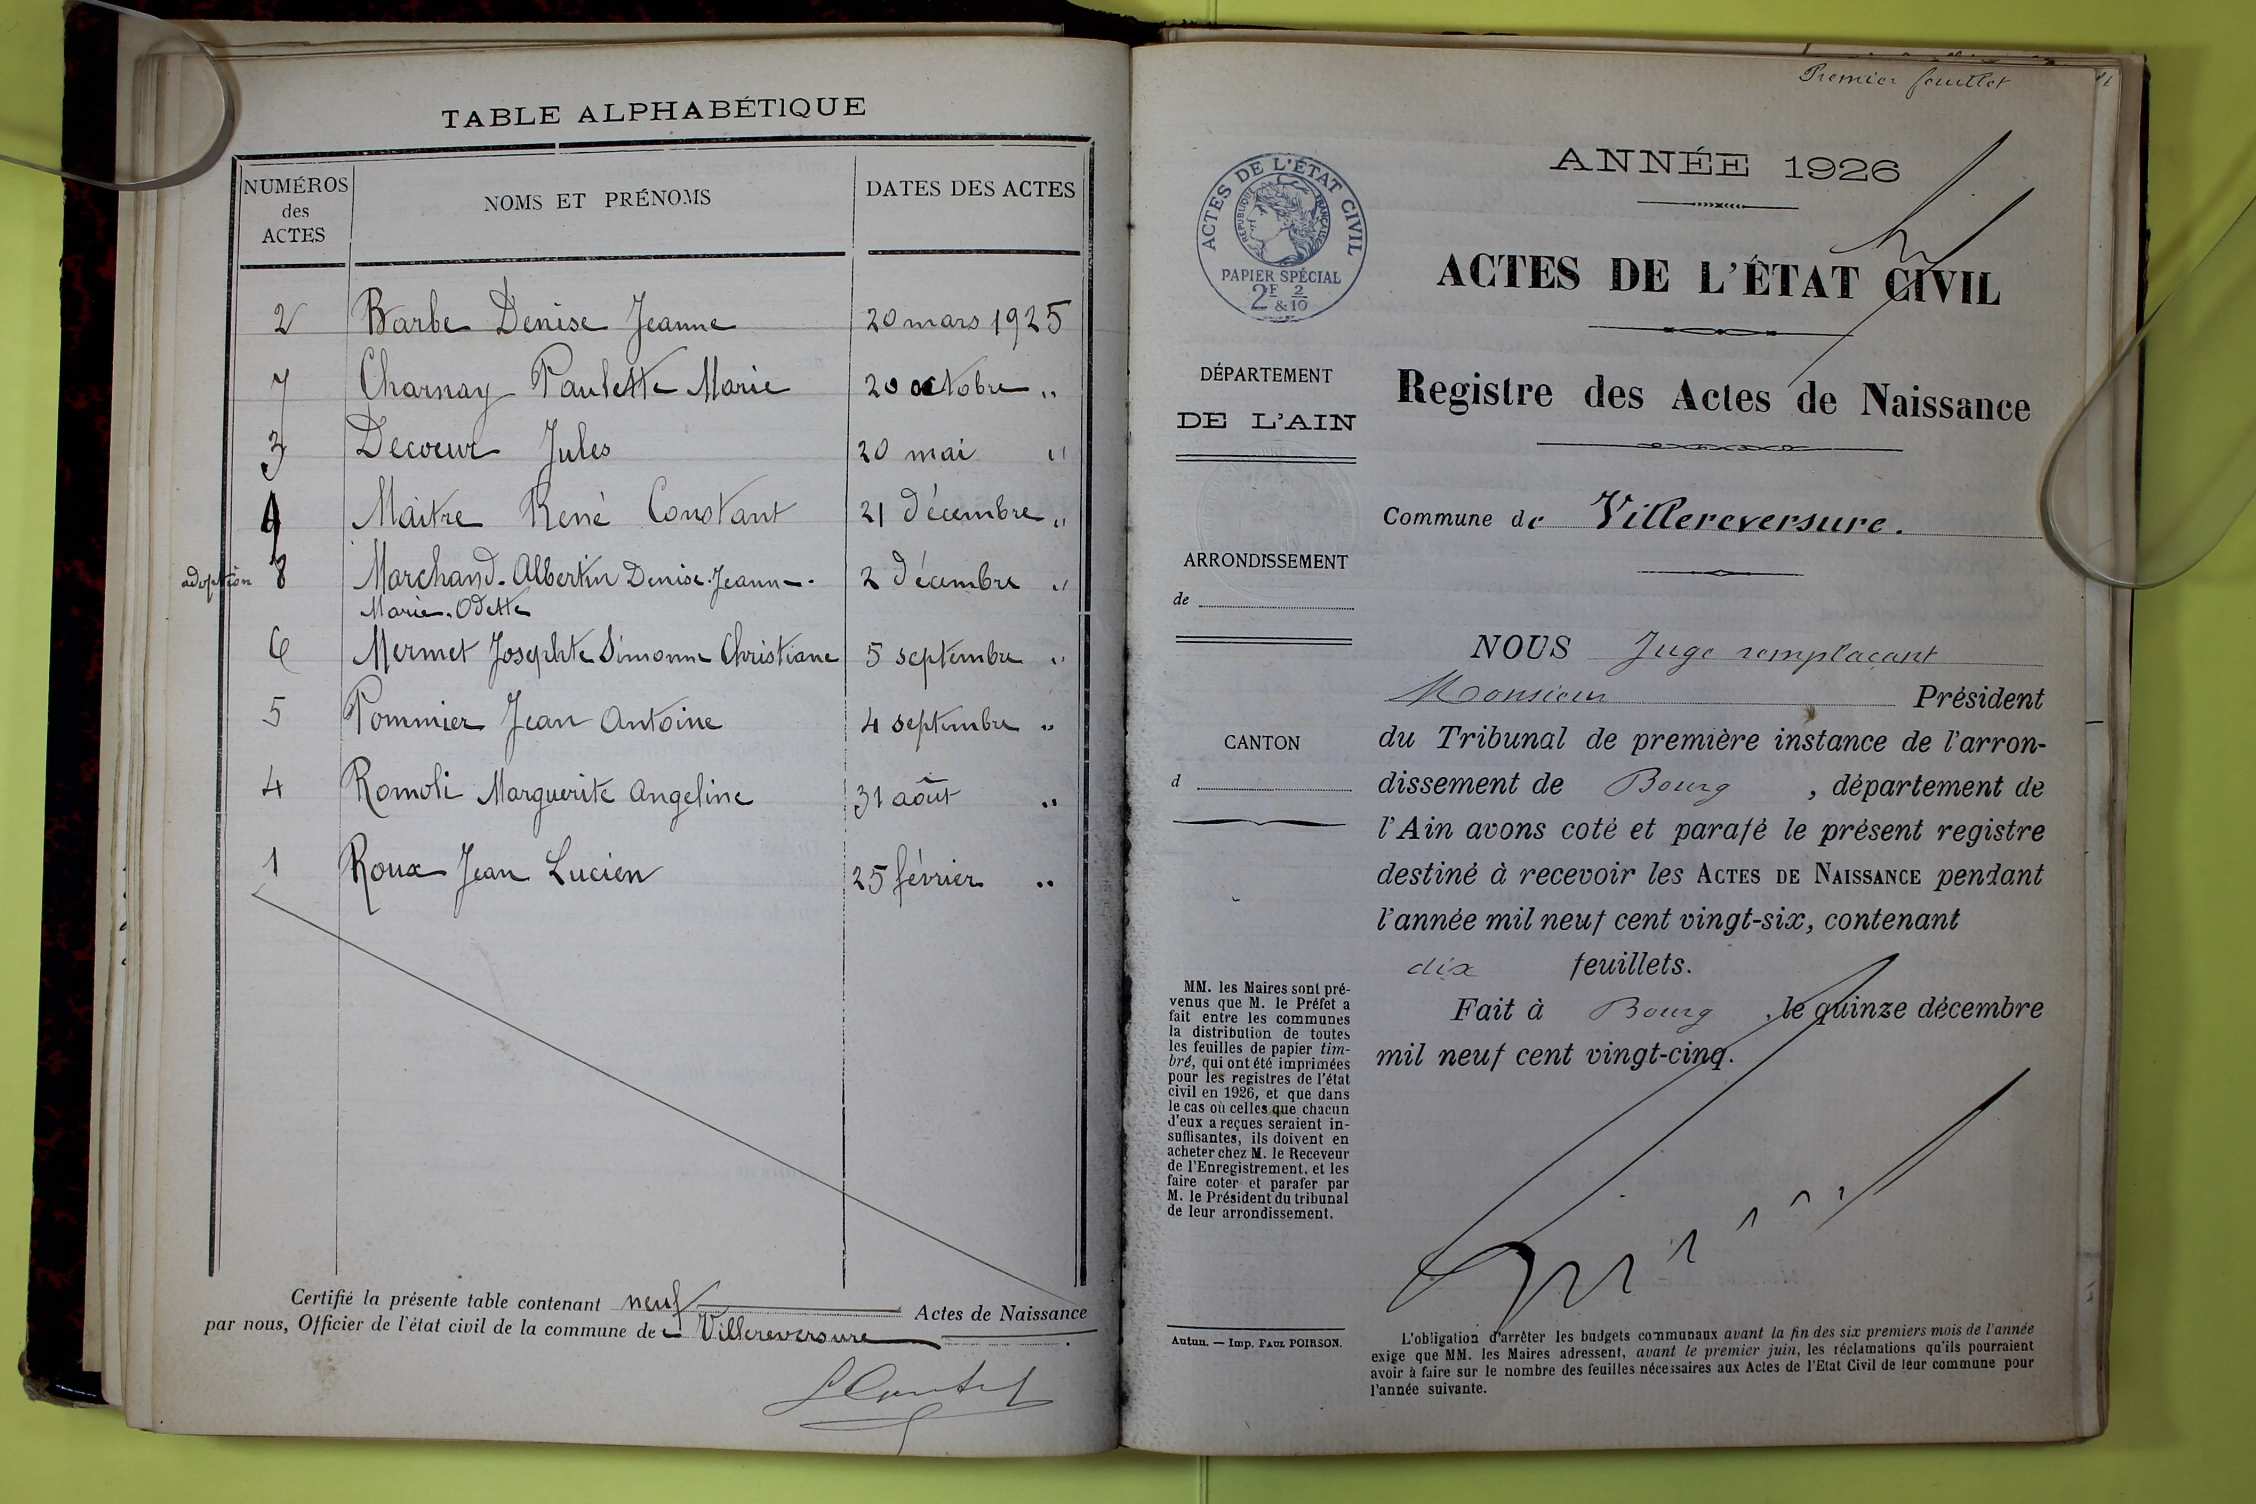 TABLE ALPHABÉTIQUE
NUMÉROS des ACTES NOMS ET PRÉNOMS DATES DES ACTES
2 Barbe Denise Jeanne 20 mars 1925
7 Charnay Paulette Marie 20 octobre "
3 Decoeur Jules 20 mai "
9 Maitre René Constant 21 décembre "
adoption 8 Marchand. Albertin Denise. Jeanne.
Marie. Odette 2 décembre "
6 Mermet Josephte Simonne Christiane 5 septembre "
5 Pommier Jean Antoine 4 septembre "
4 Romoli Marguerite Angeline 31 août "
1 Roux Jean Lucien 25 février "
Certifié la présente table contenant neuf Actes de Naissance
par nous, Officier de l'état civil de la commune de Villereversure
Premier feuillet
ACTES DE L'ÉTAT CIVIL
RÉPUBLIQUE FRANÇAISE
PAPIER SPÉCIAL
2F & 2/10
DÉPARTEMENT
DE L'AIN
ARRONDISSEMENT
de
CANTON
d
MM. les Maires sont pré-
venus que M. le Préfet a
fait entre les communes
la distribution de toutes
les feuilles de papier tim-
bré, qui ont été imprimées
pour les registres de l'état
civil en 1926, et que dans
le cas où celles que chacun
d'eux a reçues seraient in-
suffisantes, ils doivent en
acheter chez M. le Receveur
de l'Enregistrement, et les
faire coter et parafer par
M. le Président du tribunal
de leur arrondissement.
Autun. — Imp. PAUL POIRSON.
ANNÉE 1926
ACTES DE L'ÉTAT CIVIL
Registre des Actes de Naissance
Commune de Villereversure.
NOUS Juge remplaçant
Monsieur Président
du Tribunal de première instance de l'arron-
dissement de Bourg, département de
l'Ain avons coté et parafé le présent registre
destiné à recevoir les ACTES DE NAISSANCE pendant
l'année mil neuf cent vingt-six, contenant
dix feuillets.
Fait à Bourg, le quinze décembre
mil neuf cent vingt-cinq.
L'obligation d'arrêter les budgets communaux avant la fin des six premiers mois de l'année
exige que MM. les Maires adressent, avant le premier juin, les réclamations qu'ils pourraient
avoir à faire sur le nombre des feuilles nécessaires aux Actes de l'Etat Civil de leur commune pour
l'année suivante.